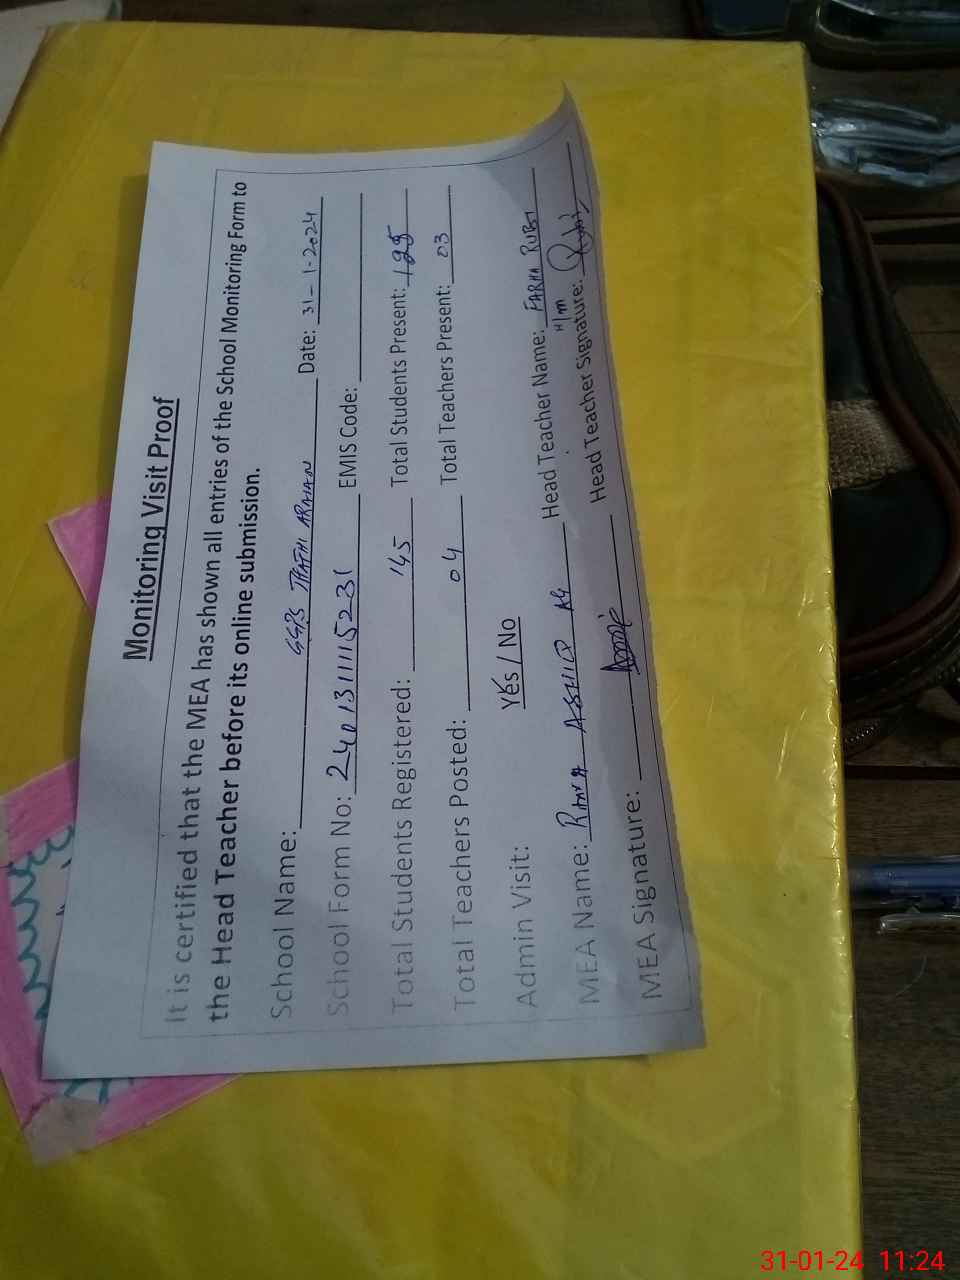 Monitoring Visit Proof
It is certified that the MEA has shown all entries of the School Monitoring Form to
the Head Teacher before its online submission.
School Name: GGPS Date: 31-1-2024
School Form No: 2401311115231 EMIS Code:
Total Students Registered: 145 Total Students Present: 125
Total Teachers Posted: 04 Total Teachers Present: 03
Admin Visit: Yes / No
MEA Name: Rana ASHIQ Ali Head Teacher Name: FARHA RUBI
H/m
MEA Signature: Head Teacher Signature:
31-01-24 11:24